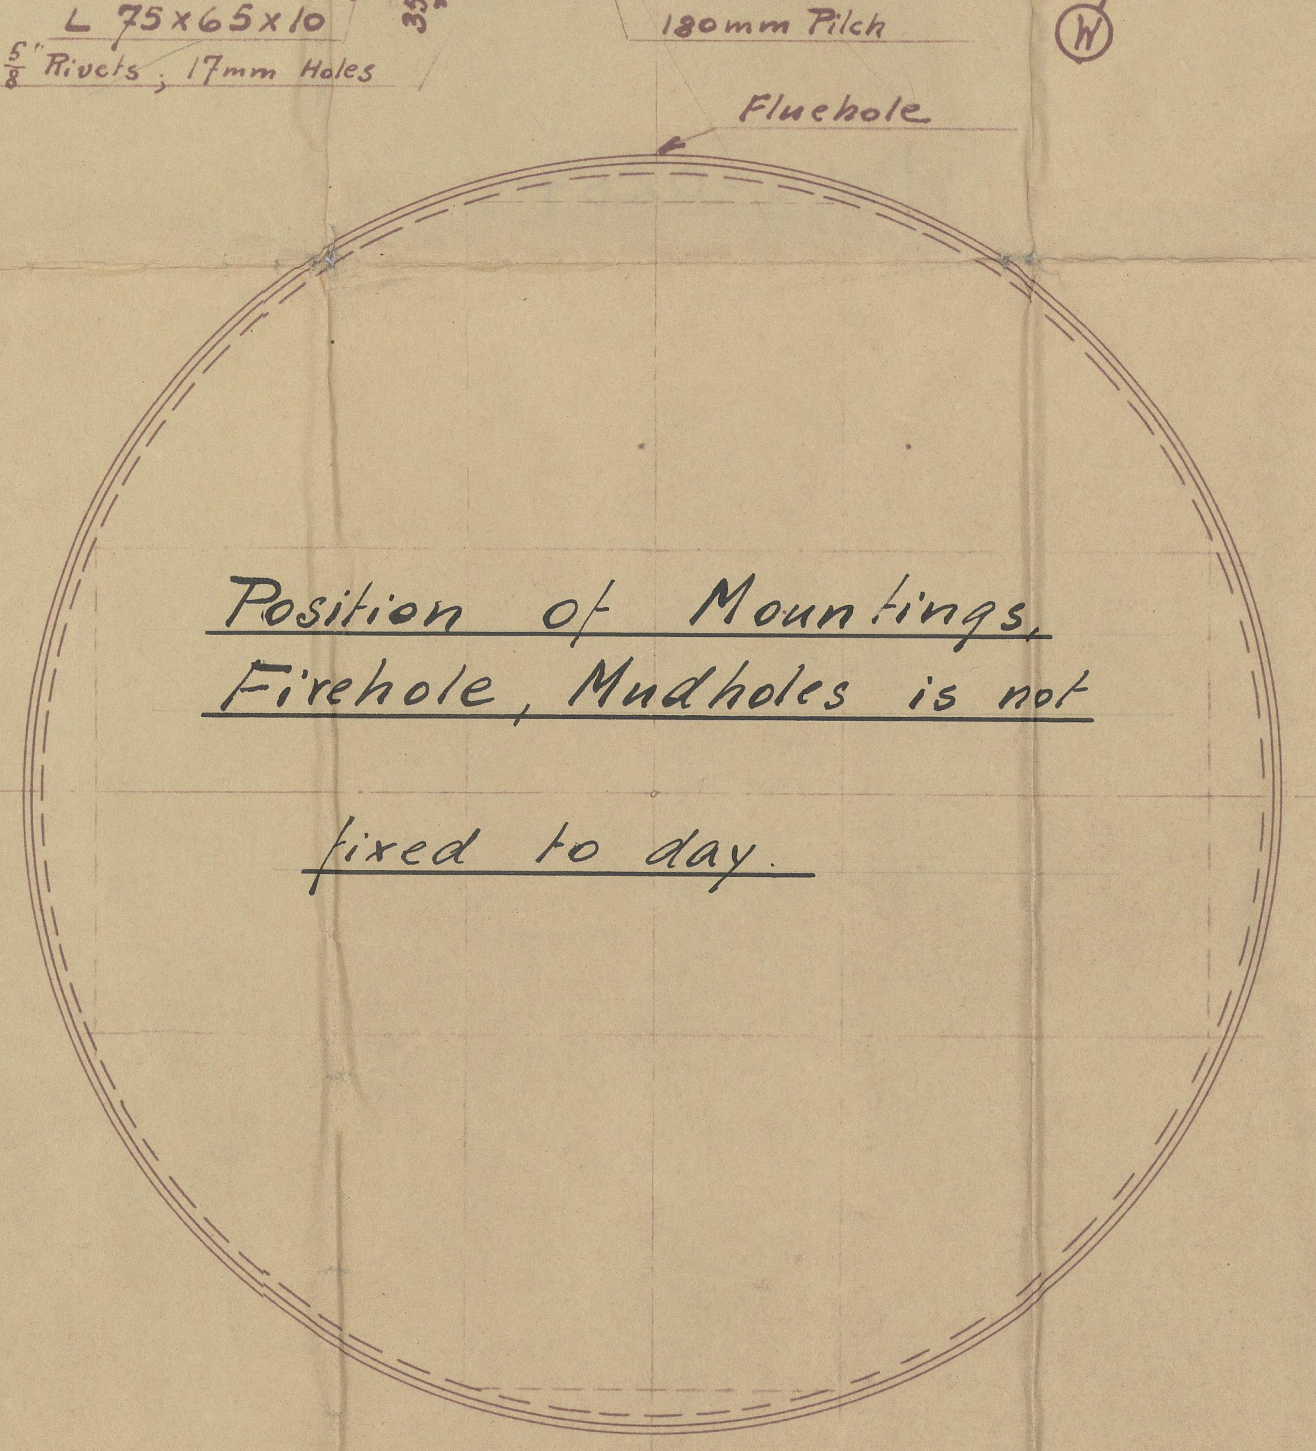 L 75x65x10
5/8" Rivets; 17mm Holes
35
180mm Pitch
W
Fluehole
Position of Mountings,
Firehole, Mudholes is not
fixed to day.